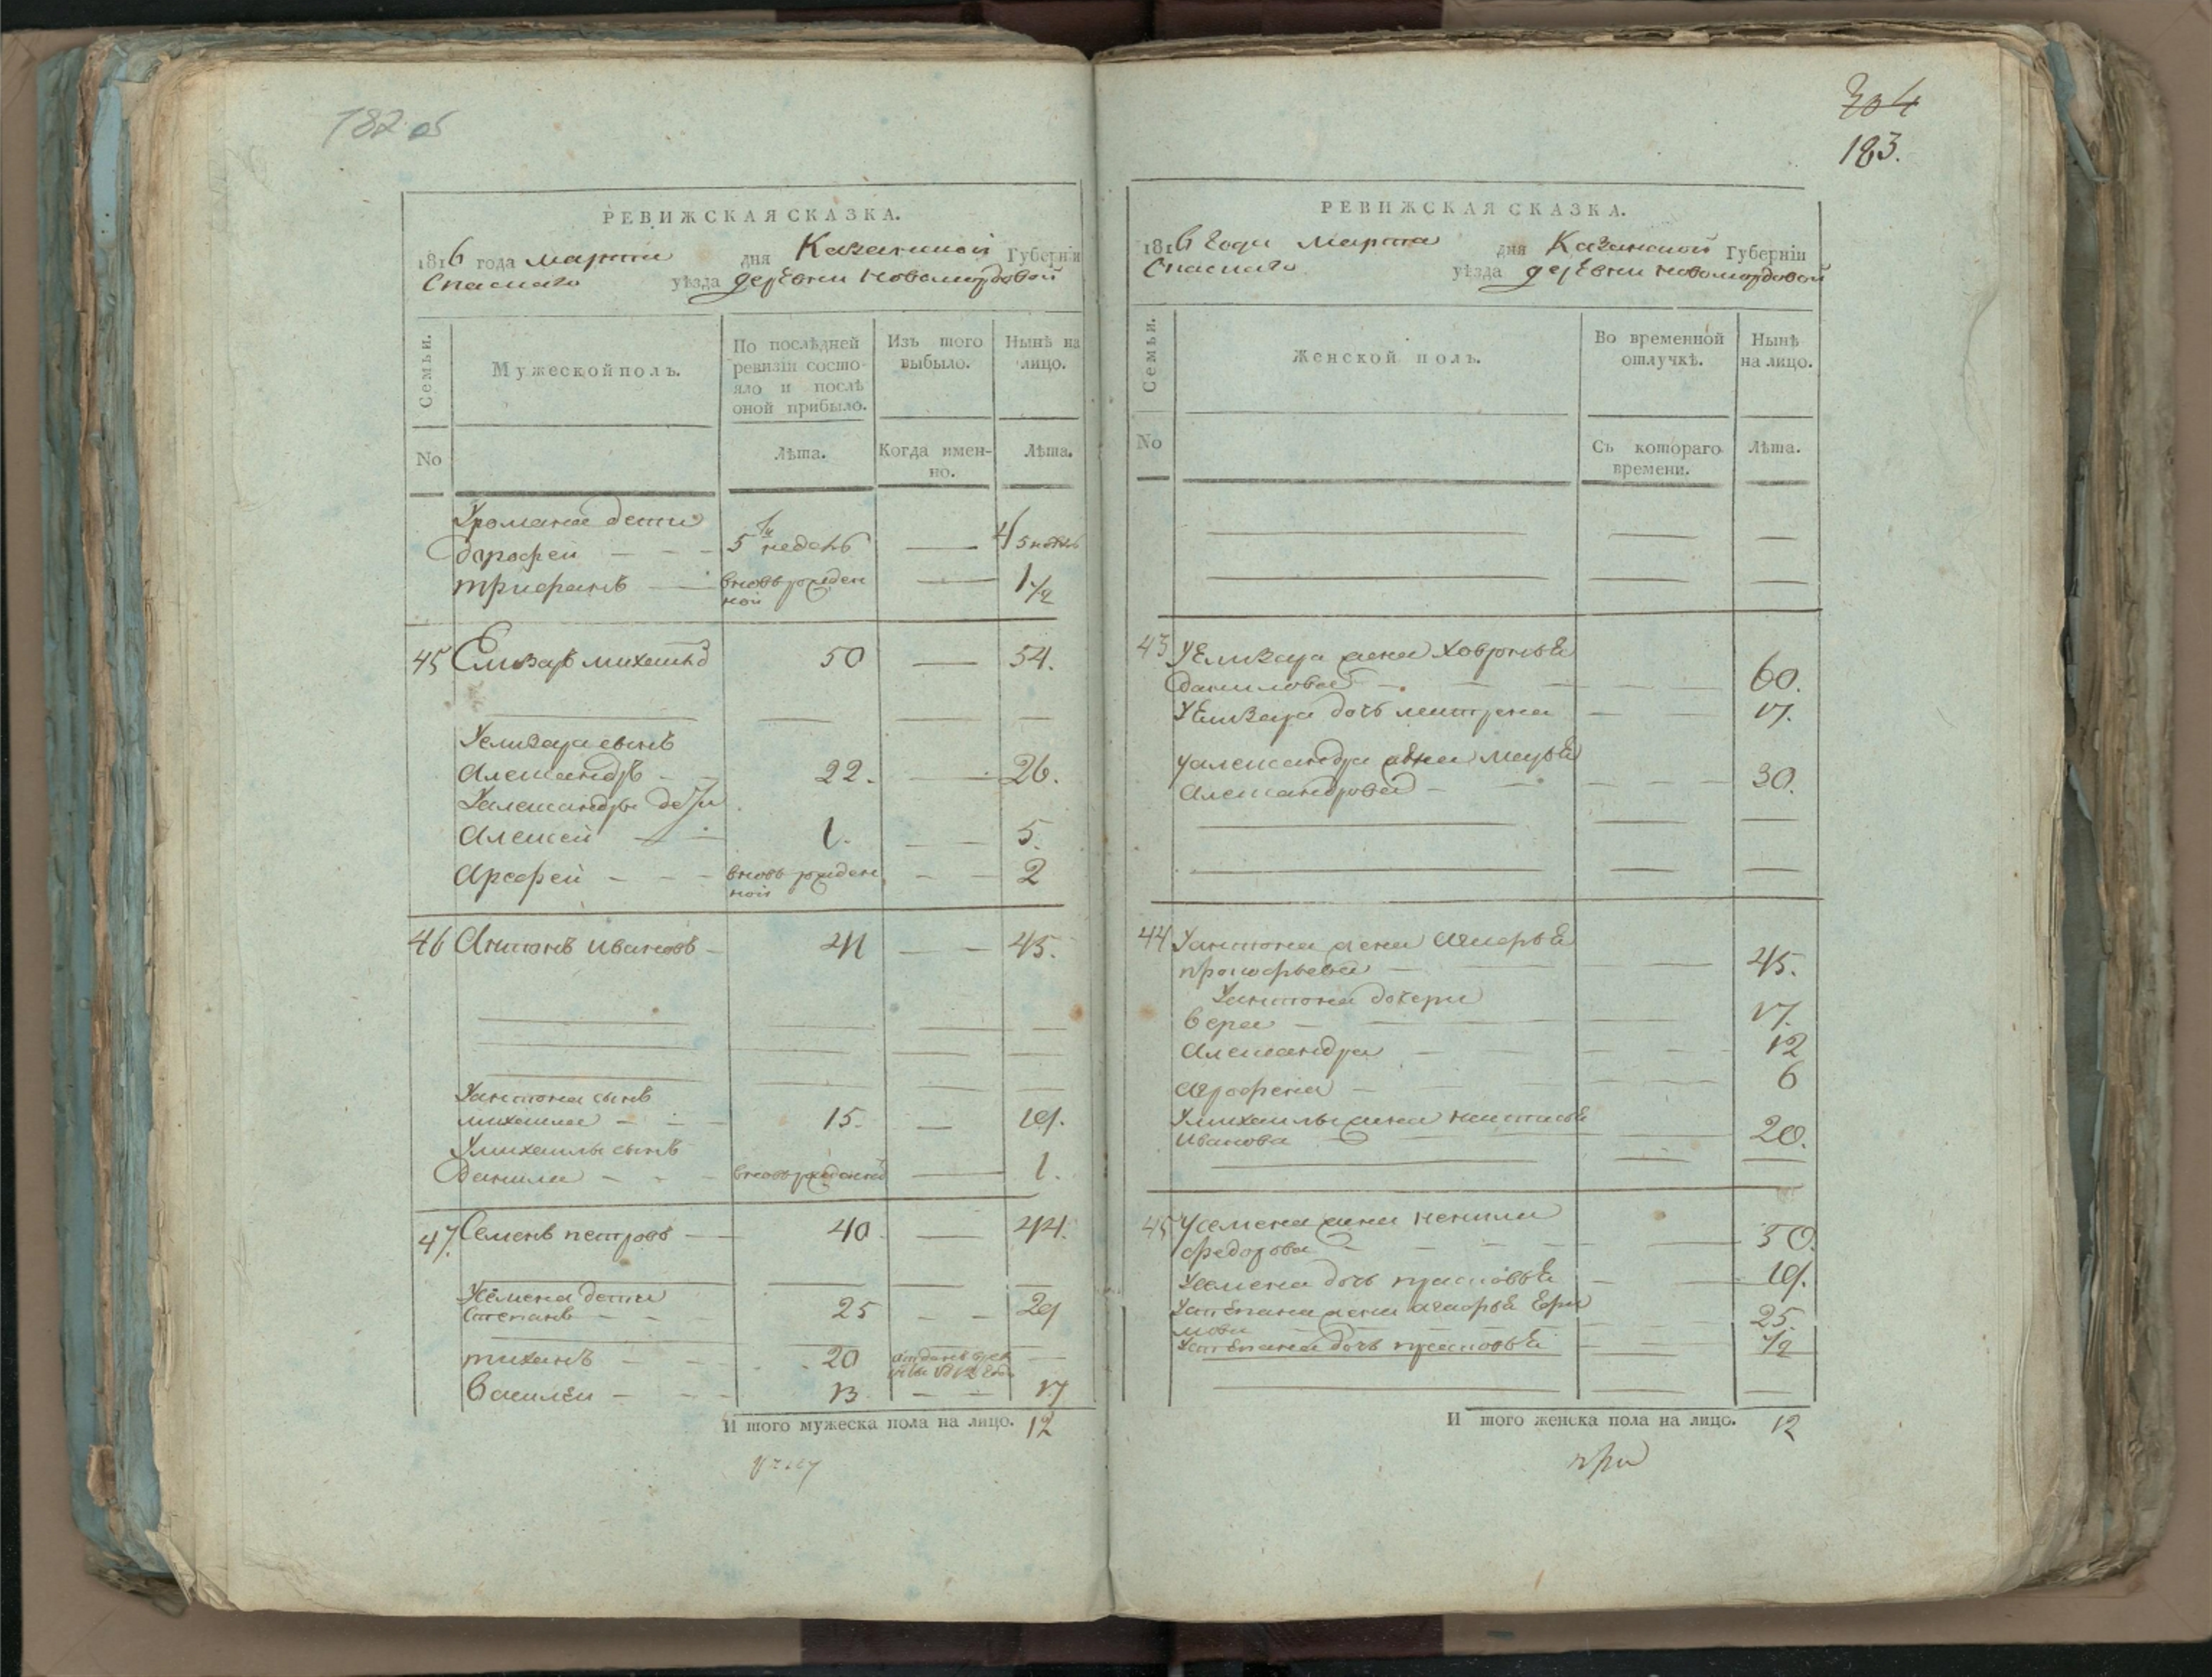 182 об
РЕВИЖСКАЯ СКАЗКА.
1816 года марта дня Казанской Губерніи
Спаскаго уѣзда деревни Новомордовой
Семьи.
Мужеской полъ.
По послѣдней ревизіи состо-
яло и послѣ
оной прибыло.
Изъ того
выбыло.
Нынѣ на
лицо.
No
Лѣта.
Когда имен-
но.
Лѣта.
Уромана дети
дарофей 5 недель 4
трифанъ вновь рожден
ной 1 1/2
45 Елизаръ михайлъ 50 54.
Уелизара сынъ
Александръ 22. 26.
Уалександры дети
Алексей 1. 5.
Арефей вновь рожден
ной 2
46 Антонъ Ивановъ 41 45.
Уантона сынъ
михаила 15. 19.
Умихаилы сынъ
Данила вновь рожденной 1.
47. Семенъ петровъ 40 44.
Усемена дети
Степанъ 25 29
тиханъ 20 отданъ в рек
руты 1812 года
Василеи 13 17
И того мужеска пола на лицо. 12
304
183.
РЕВИЖСКАЯ СКАЗКА.
1816 года марта дня Казанской Губерніи
Спаскаго уѣзда деревни новомордовой
Семьи.
Женской полъ.
Во временной
отлучкѣ.
Нынѣ
на лицо.
No
Съ котораго
времени.
Лѣта.
43 Уелизара жена ховронья
данилова 60.
Уелизара дочь матрена 17.
Уалександра жена марья
Александрова 30.
44 Уантона жена
прокофьева 45.
Уантона дочери
вера 17.
Александра 12
агрофена 6
Умихаилы жена настасья
Иванова 20.
45 Усемена жена ненила
федорова 50.
Усемена дочь прасковья 19.
Устепана жена агафья Ефи
мова 25.
Устепана дочь прасковья 1/2
И того женска пола на лицо. 12
при